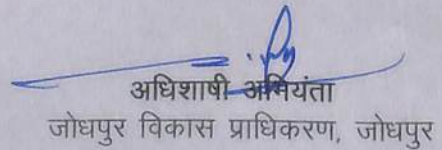 अधिशाषी अभियंता
जोधपुर विकास प्राधिकरण, जोधपुर